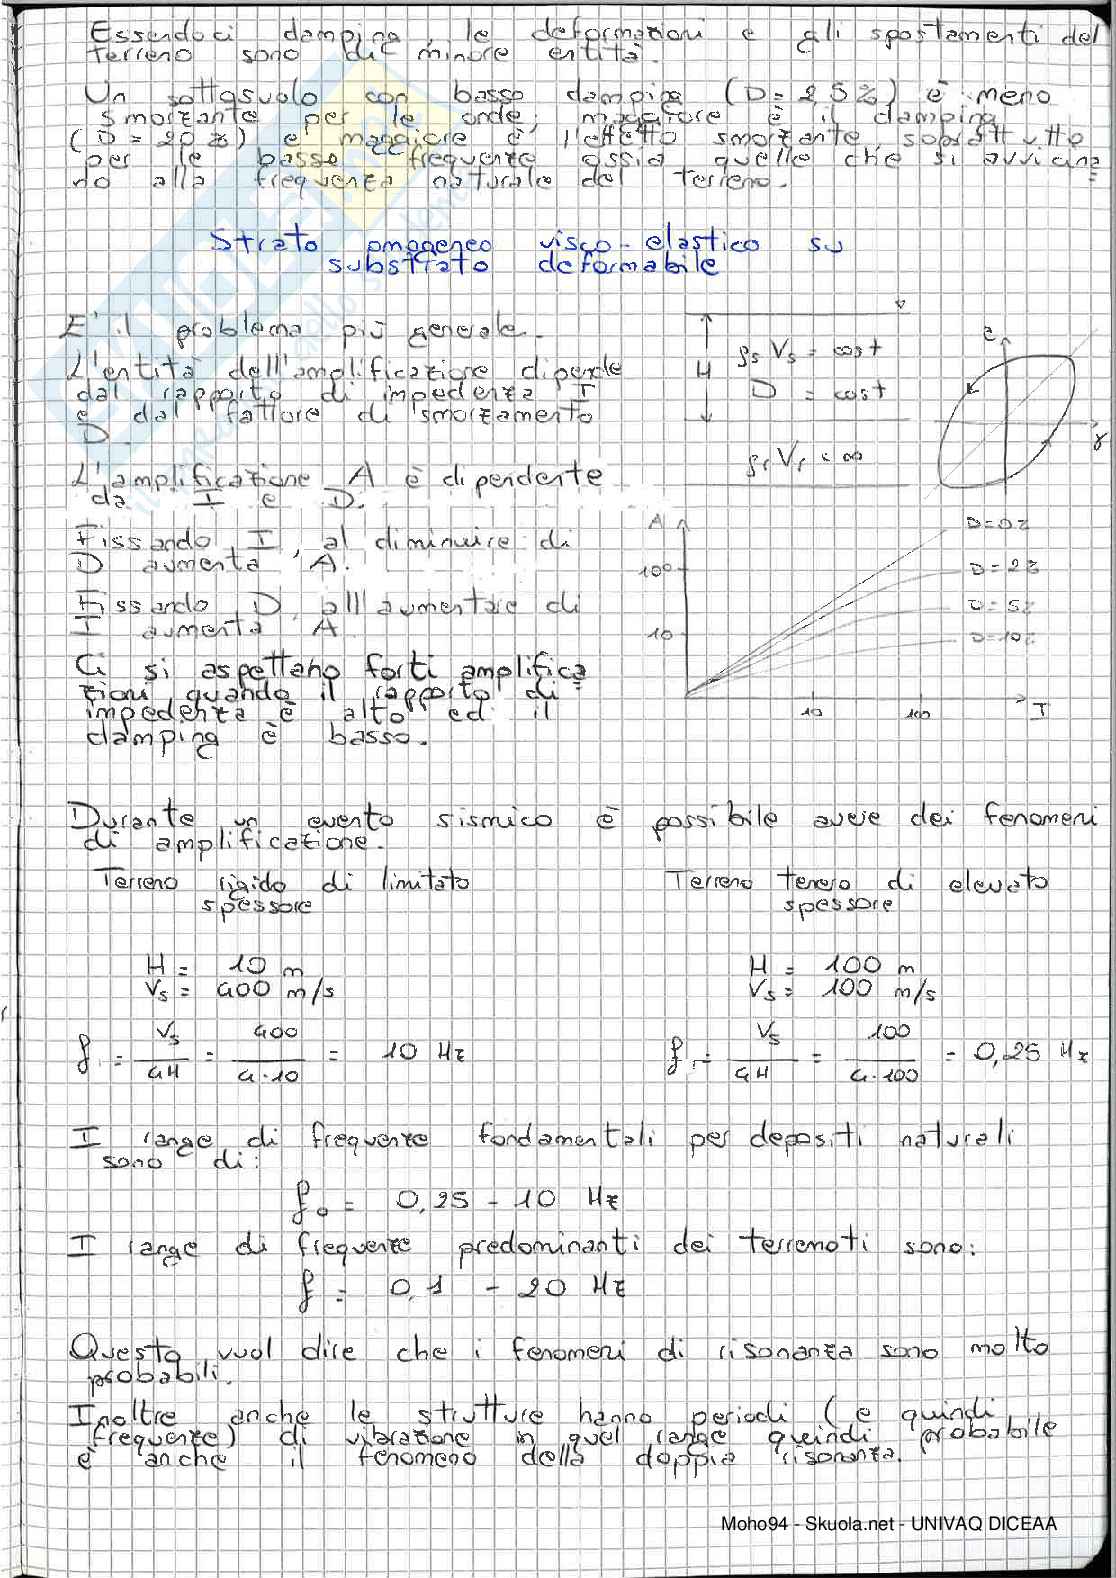 Essendoci damping, le deformazioni e gli spostamenti del
terreno sono di minore entità.
Un sottosuolo con basso damping (D=2,5%) è meno
smorzante per le onde; maggiore è il damping
(D=20%) e maggiore è l'effetto smorzante, soprattutto
per le basse frequenze ossia quelle che si avvicina
no alla frequenza naturale del terreno.
Strato omogeneo visco-elastico su
substrato deformabile
E' il problema più generale.
L'entità dell'amplificazione dipende
dal rapporto di impedenza I
e dal fattore di smorzamento
D.
L'amplificazione A è dipendente
da I e D.
Fissando I, al diminuire di
D aumenta A.
Fissando D, all'aumentare di
I aumenta A
Ci si aspettano forti amplifica
zioni quando il rapporto di
impedenza è alto ed il
damping è basso.
H
ρs Vs = cost
D = cost
ρr Vr = ∞
τ
γ
A
100
10
D=0%
D=2%
D=5%
D=10%
10 100 I
Durante un evento sismico è possibile avere dei fenomeni
di amplificazione.
Terreno rigido di limitato
spessore
H = 10 m
Vs = 400 m/s
f1 = Vs/4H = 400/4·10 = 10 Hz
Terreno tenero di elevato
spessore
H = 100 m
Vs = 100 m/s
f1 = Vs/4H = 100/4·100 = 0,25 Hz
I range di frequenze fondamentali per depositi naturali
sono di:
f0 = 0,25 - 10 Hz
I range di frequenze predominanti dei terremoti sono:
f = 0,1 - 20 Hz
Questo vuol dire che i fenomeni di risonanza sono molto
probabili.
Inoltre anche le strutture hanno periodi (e quindi
frequenze) di vibrazione in quel range quindi probabile
è anche il fenomeno della doppia risonanza.
Moho94 - Skuola.net - UNIVAQ DICEAA